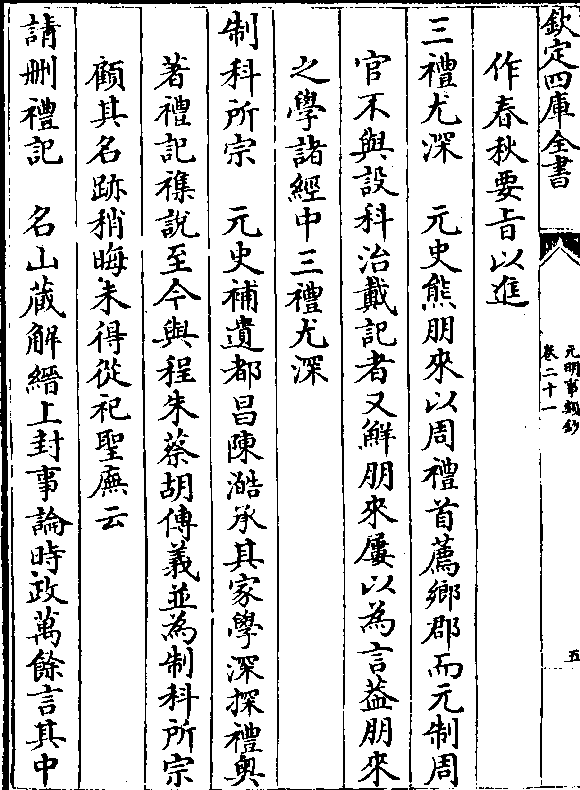 欽定四庫全書
元明事類鈔
卷二十一
五
作春秋要旨以進
三禮尤深　元史熊朋來以周禮首薦鄉郡而元制周
官不與設科治戴記者又鮮朋來屢以為言蓋朋來
之學諸經中三禮尤深
制科所宗　元史補遺都昌陳澔承其家學深探禮奥
著禮記襍說至今與程朱蔡胡傳義並為制科所宗
顧其名跡稍晦未得從祀聖廡云
請刪禮記　名山蔵解縉上封事論時政萬餘言其中